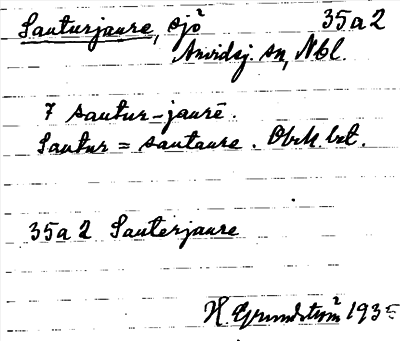 Sauturjaure, sjö 35a2
Arvidsj. sn, Nbl.
7 sautur-jaurē.
Sautur = sautaure. Obek. bet.
35a 2 Sauterjaure
H Grundström 1935